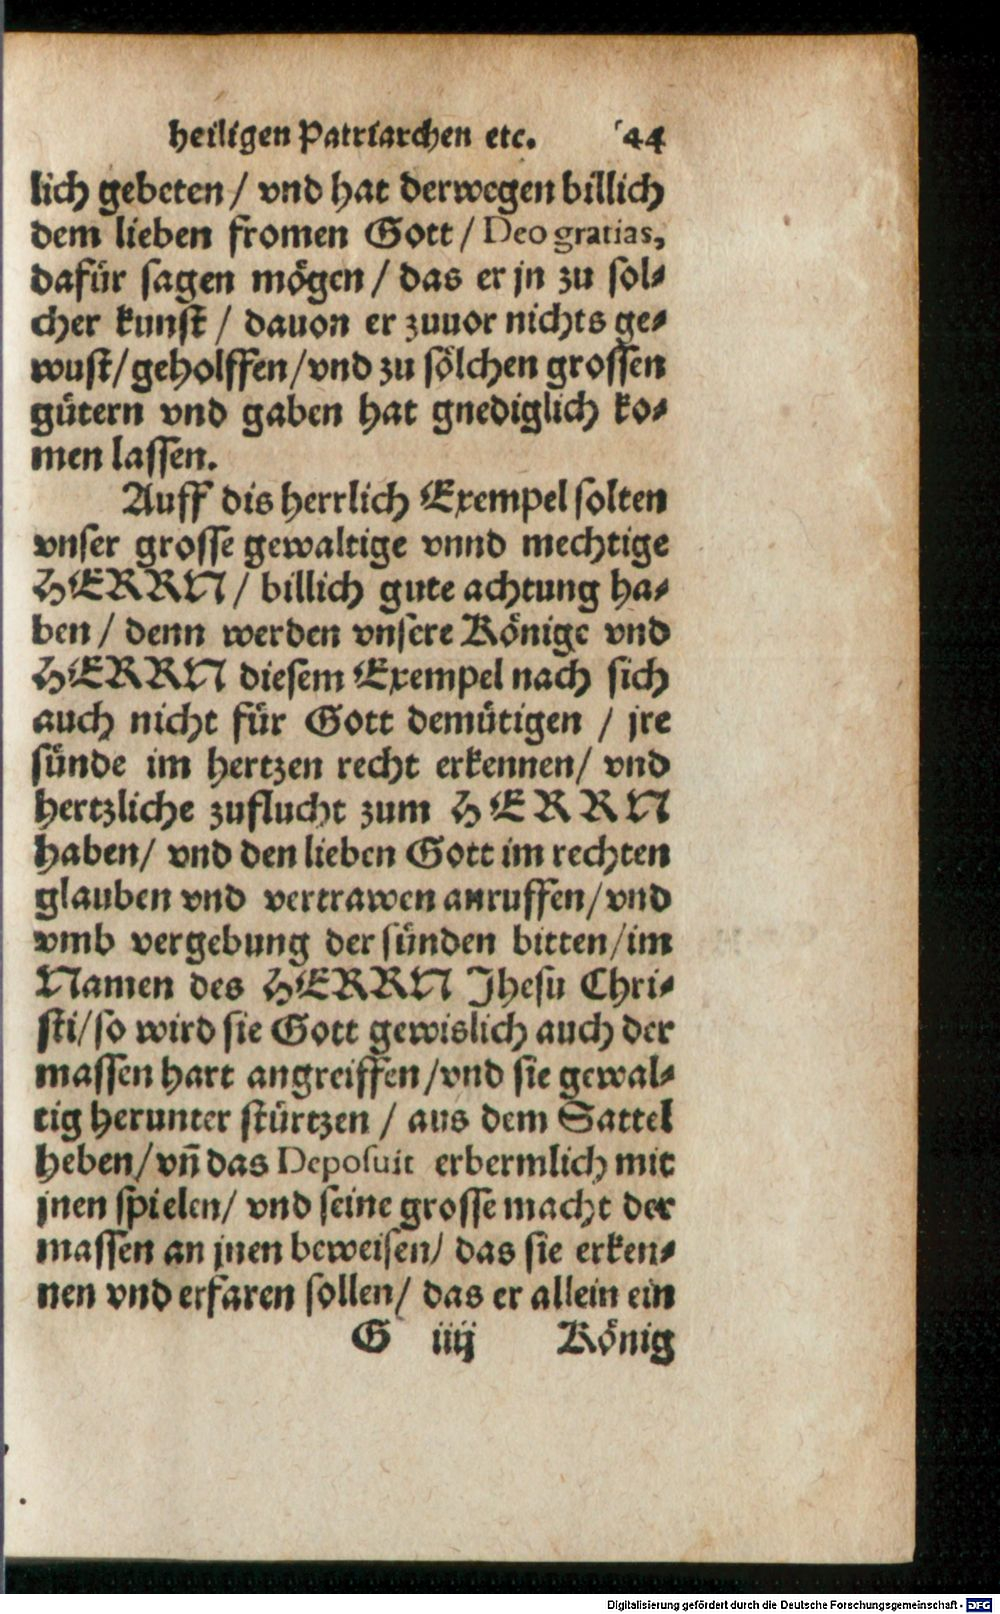 heiligen Patriarchen etc. 44
lich gebeten / vnd hat derwegen billich
dem lieben fromen Gott / Deo gratias,
dafür sagen mögen / das er jn zu sol⸗
cher kunst / dauon er zuuor nichts ge⸗
wust / geholffen / vnd zu sölchen grossen
gütern vnd gaben hat gnediglich ko⸗
men lassen.
Auff dis herrlich Exempel solten
vnser grosse gewaltige vnnd mechtige
HERRN / billich gute achtung ha⸗
ben / denn werden vnsere Könige vnd
HERRN diesem Exempel nach sich
auch nicht für Gott demütigen / jre
sünde im hertzen recht erkennen / vnd
hertzliche zuflucht zum HERRN
haben / vnd den lieben Gott im rechten
glauben vnd vertrawen anruffen / vnd
vmb vergebung der sünden bitten / im
Namen des HERRN Jhesu Chri⸗
sti / so wird sie Gott gewislich auch der
massen hart angreiffen / vnd sie gewal⸗
tig herunter stürtzen / aus dem Sattel
heben / vn̄ das Deposuit erbermlich mit
jnen spielen / vnd seine grosse macht der
massen an jnen beweisen / das sie erken⸗
nen vnd erfaren sollen / das er allein ein
G iiij König
Digitalisierung gefördert durch die Deutsche Forschungsgemeinschaft - DFG